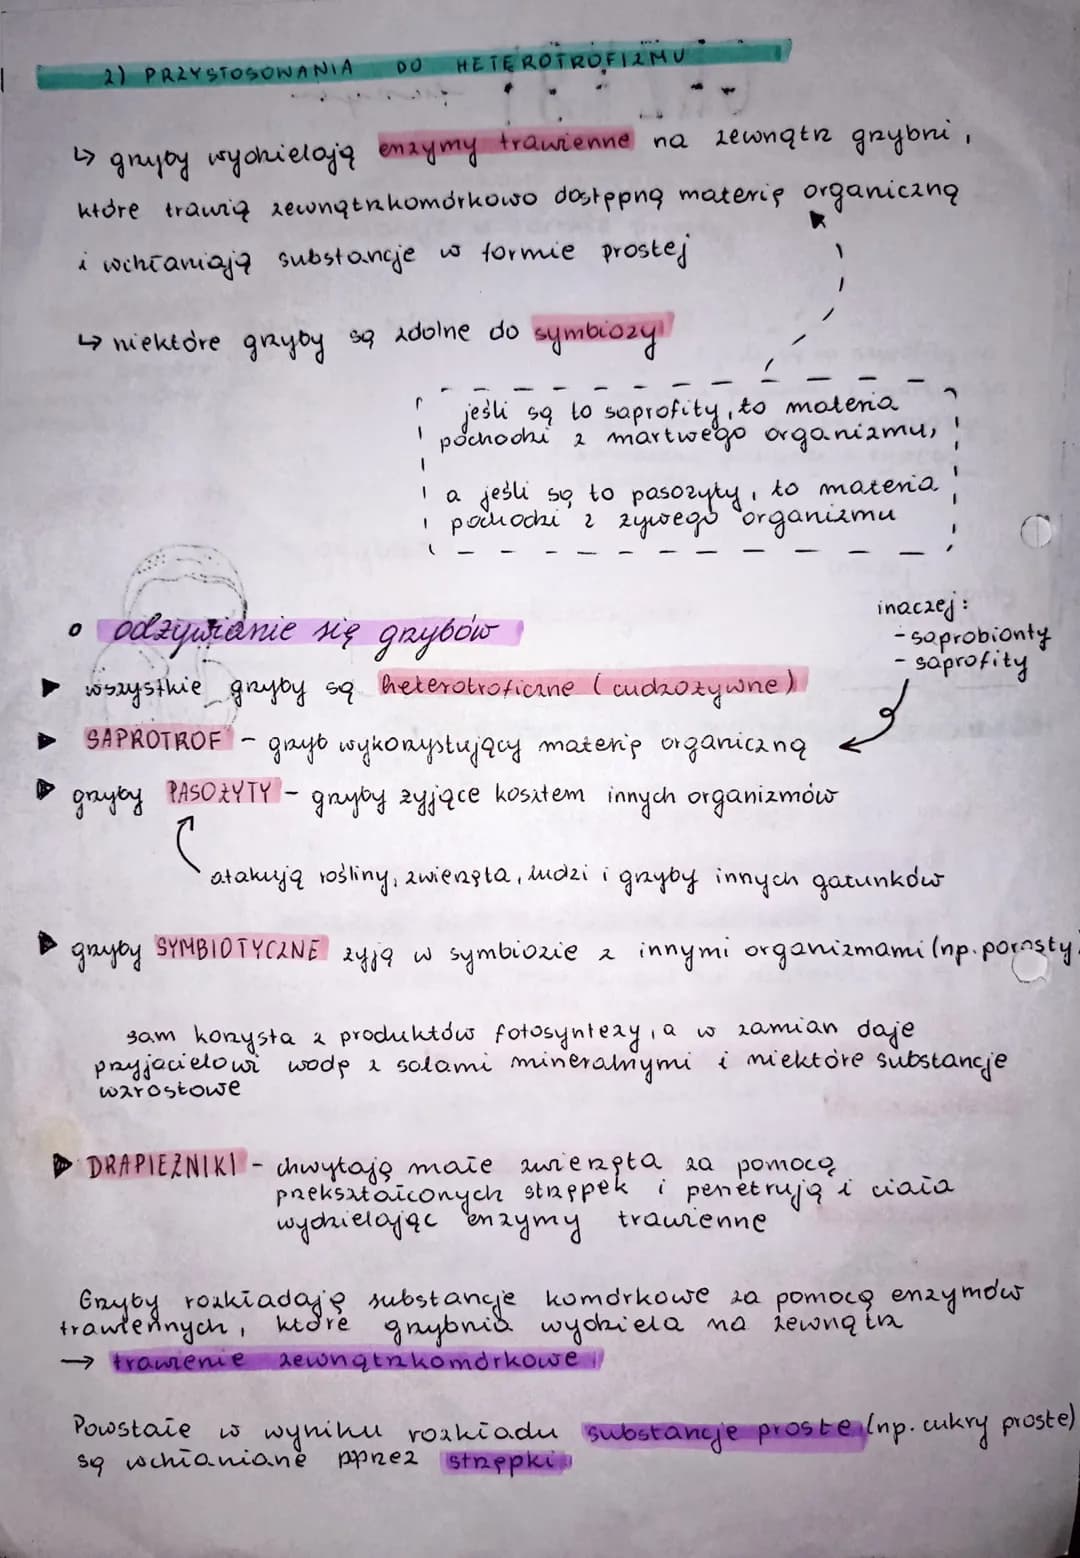 2) PRZYSTOSOWANIA DO HETEROTROFIZMU
↳ grzyby wydzielają enzymy trawienne na zewnątrz grzybni,
które trawią zewnątrzkomórkowo dostępną materię organiczną
i wchłaniają substancje w formie prostej
↳ niektóre grzyby są zdolne do symbiozy
jeśli są to saprofity, to materia
pochodzi z martwego organizmu,
a jeśli są to pasożyty, to materia
pochodzi z żywego organizmu
inaczej:
- saprobionty
- saprofity
odżywianie się grzybów
wszystkie grzyby są heterotroficzne (cudzożywne)
SAPROTROF - grzyb wykorzystujący materię organiczną
grzyby PASOŻYTY - grzyby żyjące kosztem innych organizmów
atakują rośliny, zwierzęta, ludzi i grzyby innych gatunków
grzyby SYMBIOTYCZNE żyją w symbiozie z innymi organizmami (np. porosty)
sam korzysta z produktów fotosyntezy, a w zamian daje
przyjacielowi wodę z solami mineralnymi i niektóre substancje
wzrostowe
DRAPIEŻNIKI - chwytają małe zwierzęta za pomocą
przekształconych strzępek i penetrują i ciała
wydzielając enzymy trawienne
Grzyby rozkładają substancje komórkowe za pomocą enzymów
trawiennych, które grzybnia wydziela na zewnątrz
→ trawienie zewnątrzkomórkowe
Powstałe w wyniku rozkładu substancje proste (np. cukry proste)
są wchłaniane pprzez strzępki